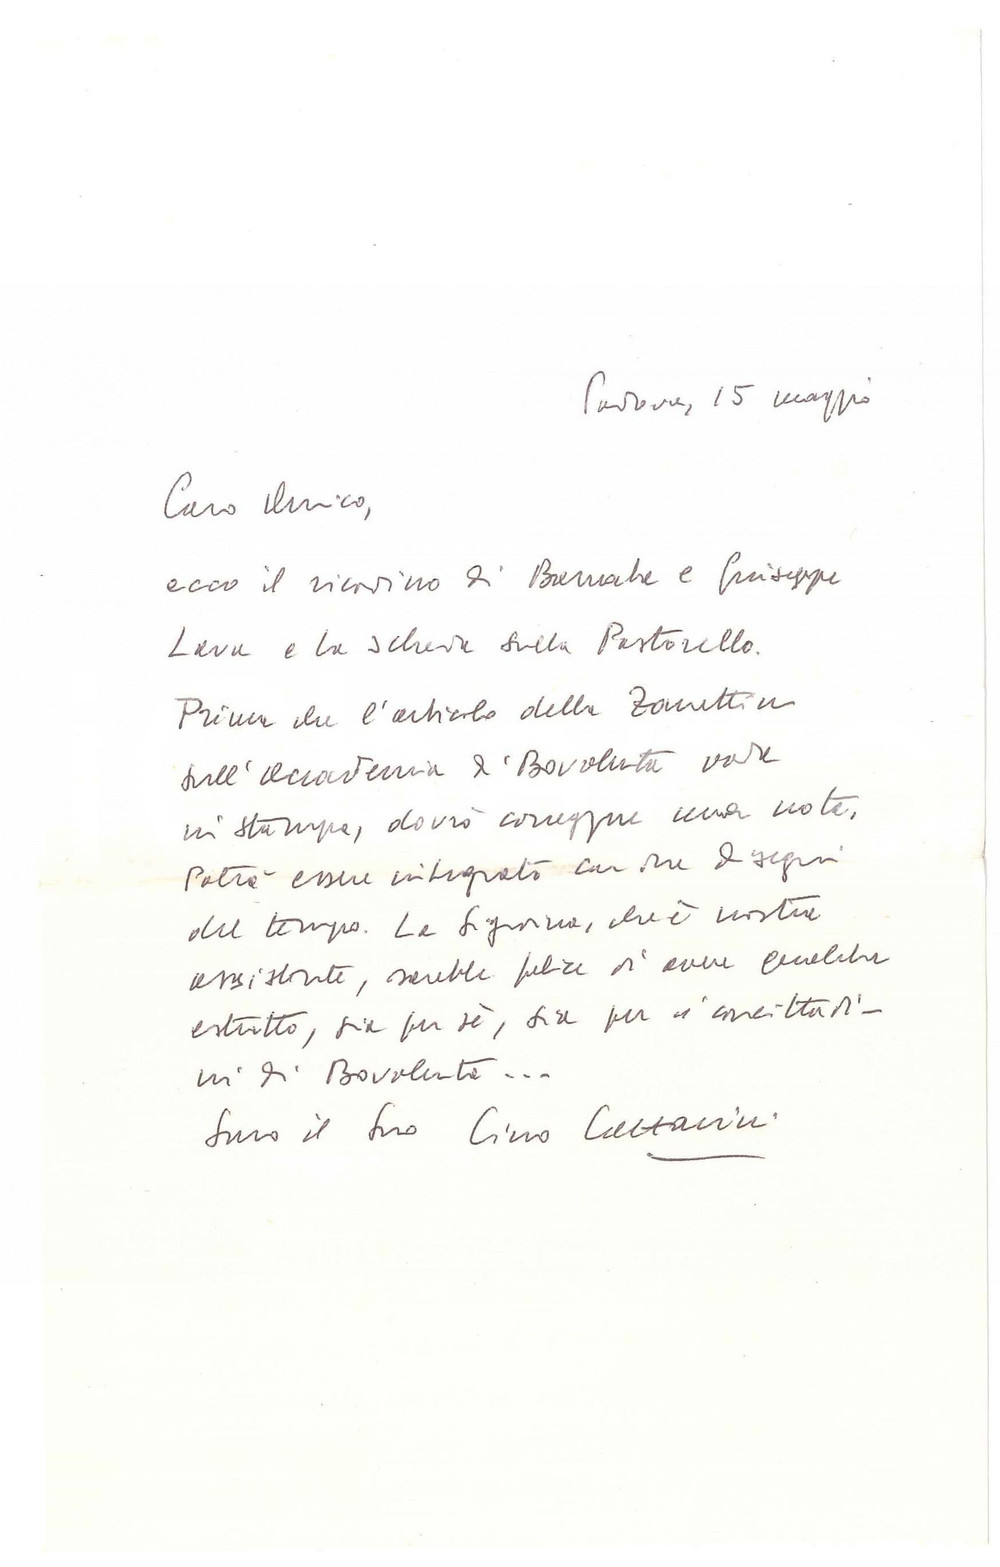 Padova, 15 maggio
Caro Amico,
ecco il ricordino di Barnaba e Giuseppe
Lava e la scheda sulla Pastorello.
Prima che l'articolo della Zanettin
sull'accademia di Bovolenta vada
in stampa, dovrò correggere una nota.
Potrà essere integrato con due disegni
del tempo. La Signorina, che è nostra
assistente, sarebbe felice di avere qualche
estratto, sia per sè, sia per i concittadi-
ni di Bovolenta...
Suo il Suo Lino